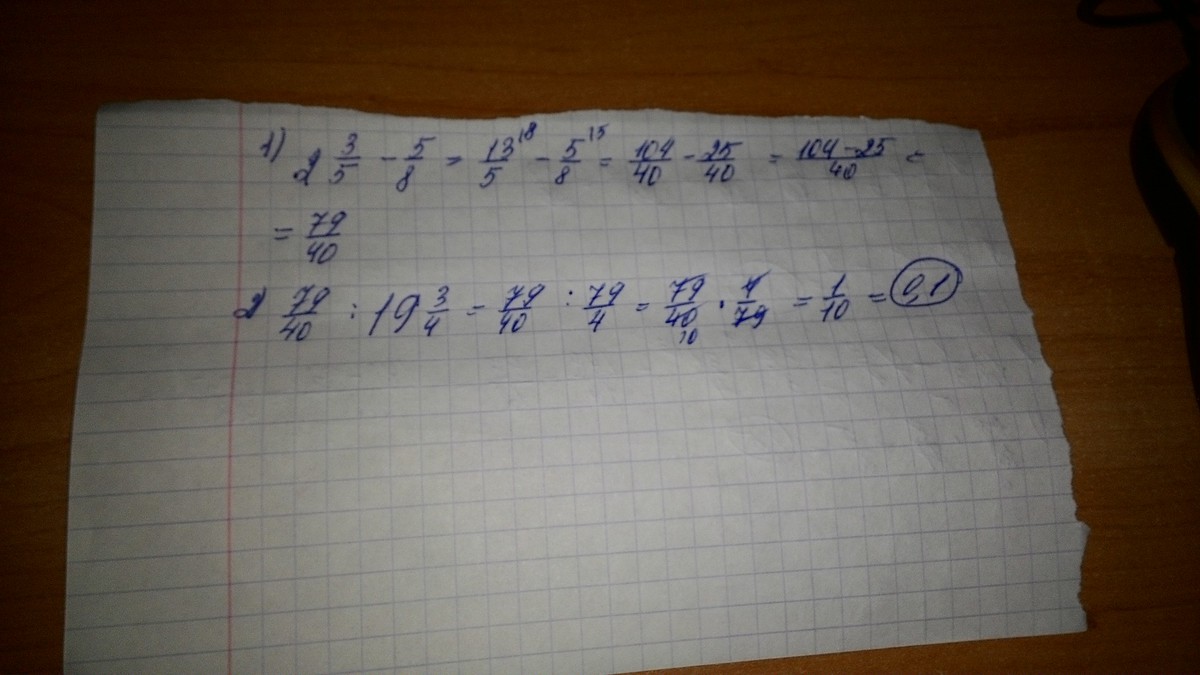 1) 2 3/5 - 5/8 = 13/5 \8 - 5/8 \5 = 104/40 - 25/40 = 104-25/40 =
= 79/40
2) 79/40 : 19 3/4 = 79/40 : 79/4 = 79/40 10 · 4/79 = 1/10 = 0,1